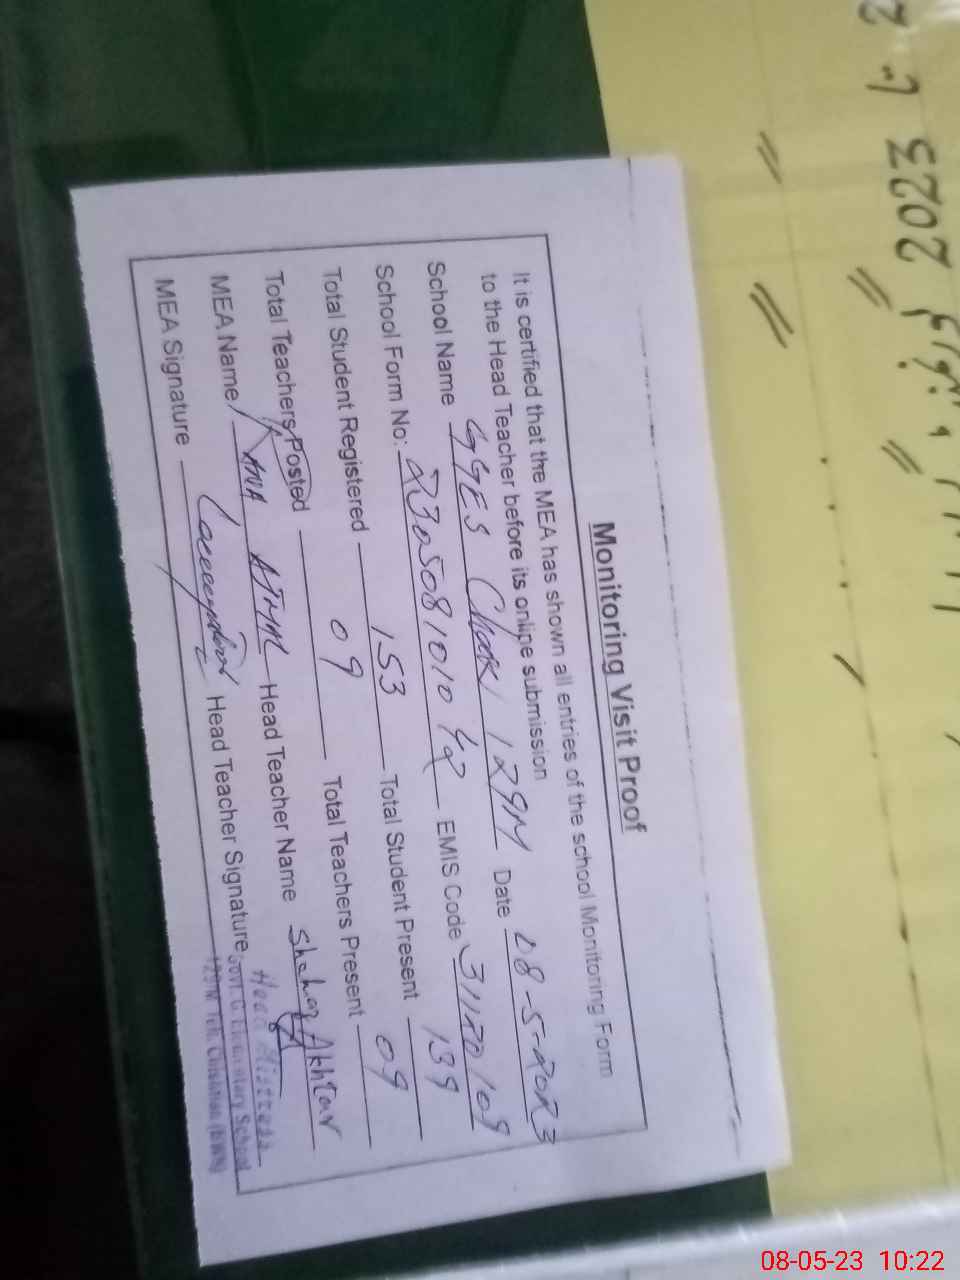 Monitoring Visit Proof
It is certified that the MEA has shown all entries of the school Monitoring Form
to the Head Teacher before its online submission
School Name GGES Chak 129M Date 08-5-2023
School Form No: 2305081010 EMIS Code 31120109
Total Student Registered 153 Total Student Present 139
Total Teachers Posted 09 Total Teachers Present 09
MEA Name RANA AJMAL Head Teacher Name Akhtar
MEA Signature Head Teacher Signature
Head Mistress
Govt. G. Elementary School
129/M Teh. Chishtian (BWN)
2023
08-05-23 10:22